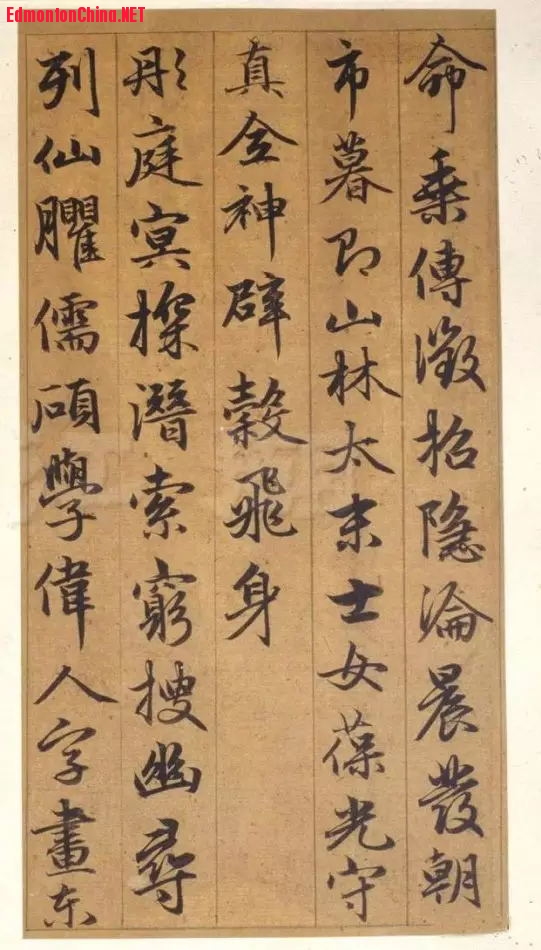 EdmontonChina.NET
命乘傳徵招隱淪晨發朝
市暮即山林太末士女葆光守
真全神辟穀飛身
彤庭冥探潛索窮搜幽尋
列仙臞儒碩學偉人字畫東